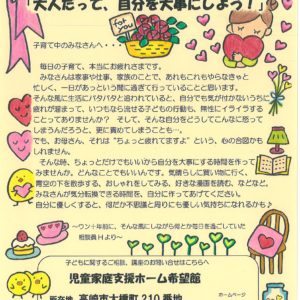 「大人だって、自分を大事にしよう！」
for you
子育て中のみなさんへ・・・
毎日の子育て、本当にお疲れさまです。
みなさんは家事や仕事、家族のことで、あれもこれもやらなきゃと
忙しく、一日があっという間に過ぎて行っていることと思います。
そんな風に生活にバタバタと追われていると、自分でも気が付かないうちに
疲れが溜まって、いつもなら流せる子どもの行動も、無性にイライラする
ことってありませんか？　そして、そんな自分をどうしてこんなに怒って
しまうんだろうと、更に責めてしまうことも…。
でも、お母さん、それは“ちょっと疲れてますよ”という、心の合図かも
しれません。
そんな時、ちょっとだけでもいいから自分を大事にする時間を作って
みませんか。どんなことでもいいです。気晴らしに買い物に行く、
青空の下を散歩する、おしゃれをしてみる、好きな漫画を読む、などなど。
みなさんが気分転換できる時間を、自分に作ってあげてください。
自分に優しくすると、何だか不思議と周りにも優しい気持ちになれるかも♪
～ウン十年前に、そんな風にしながら何とか毎日を過ごしていた
相談員Hより～
子どもに関するご相談、講座のお問い合せはこちらへ
児童家庭支援ホーム希望館
ホームページ
所在地 高崎市大橋町210番地